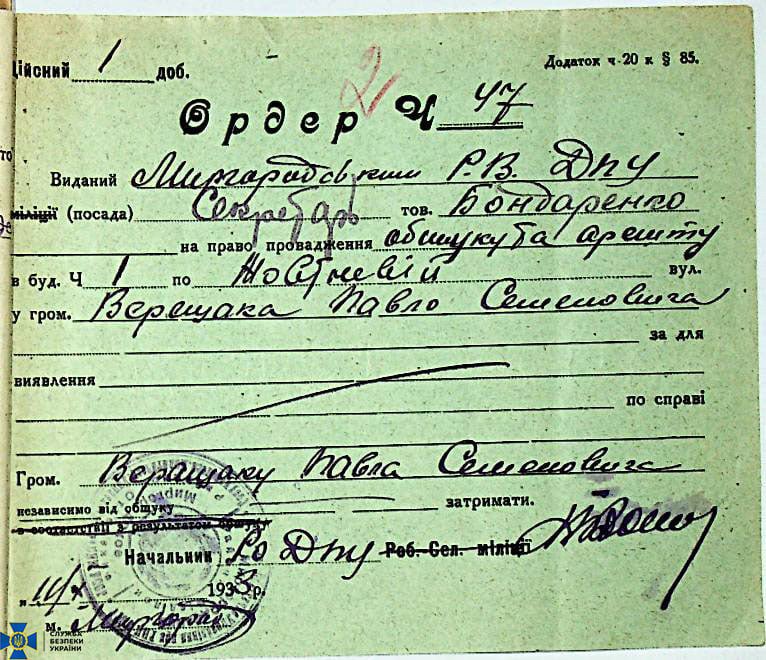 Дійсний 1 доб.
Додаток ч-20 к § 85.
2
Ордер Ч 47
Виданий Миргородським Р.В. ДПУ
міліції (посада) Секретарь тов. Бондаренко
на право провадження обшуку та арешту
в буд. Ч 1 по Жовтневій вул.
у гром. Верещака Павло Семеновича
за для
виявлення
по справі
Гром. Веращаку Павла Семеновича
незалежно від обшуку затримати.
Начальник РО ДПУ Роб.-Сел. міліції
1933 р.
м. Миргород
СЛУЖБА
БЕЗПЕКИ
УКРАЇНИ